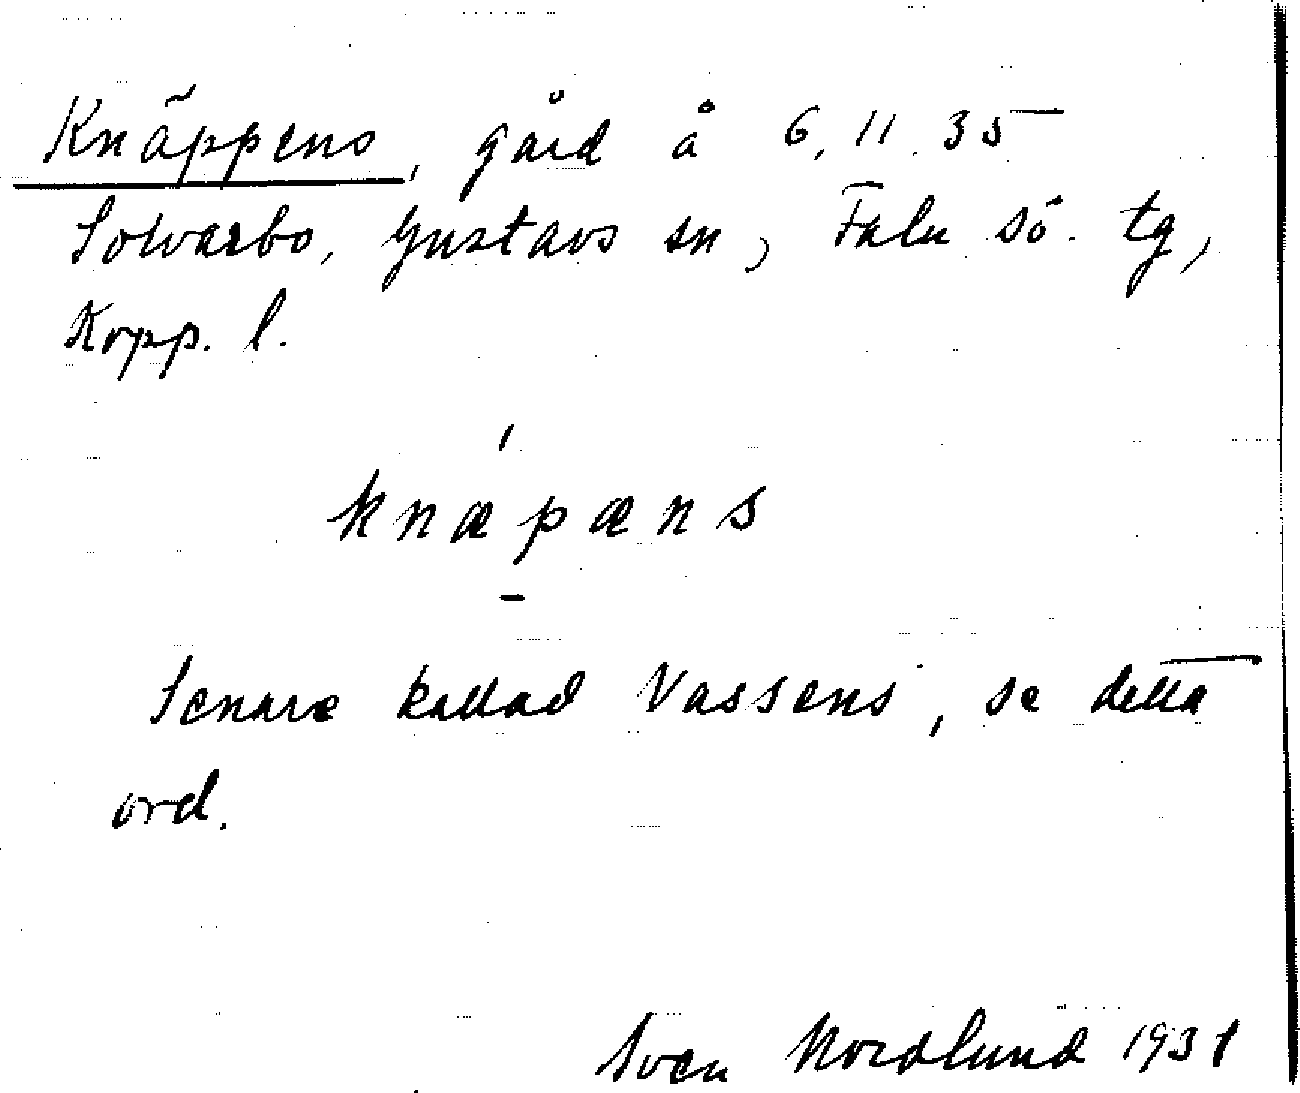 Knäppens, gård å 6.11.35
Solvarbo, Gustavs sn, Falu sö. tg,
Kopp. l.
knæpæns
Senare kallad Vassens, se detta
ord.
Sven Nordlund 1931